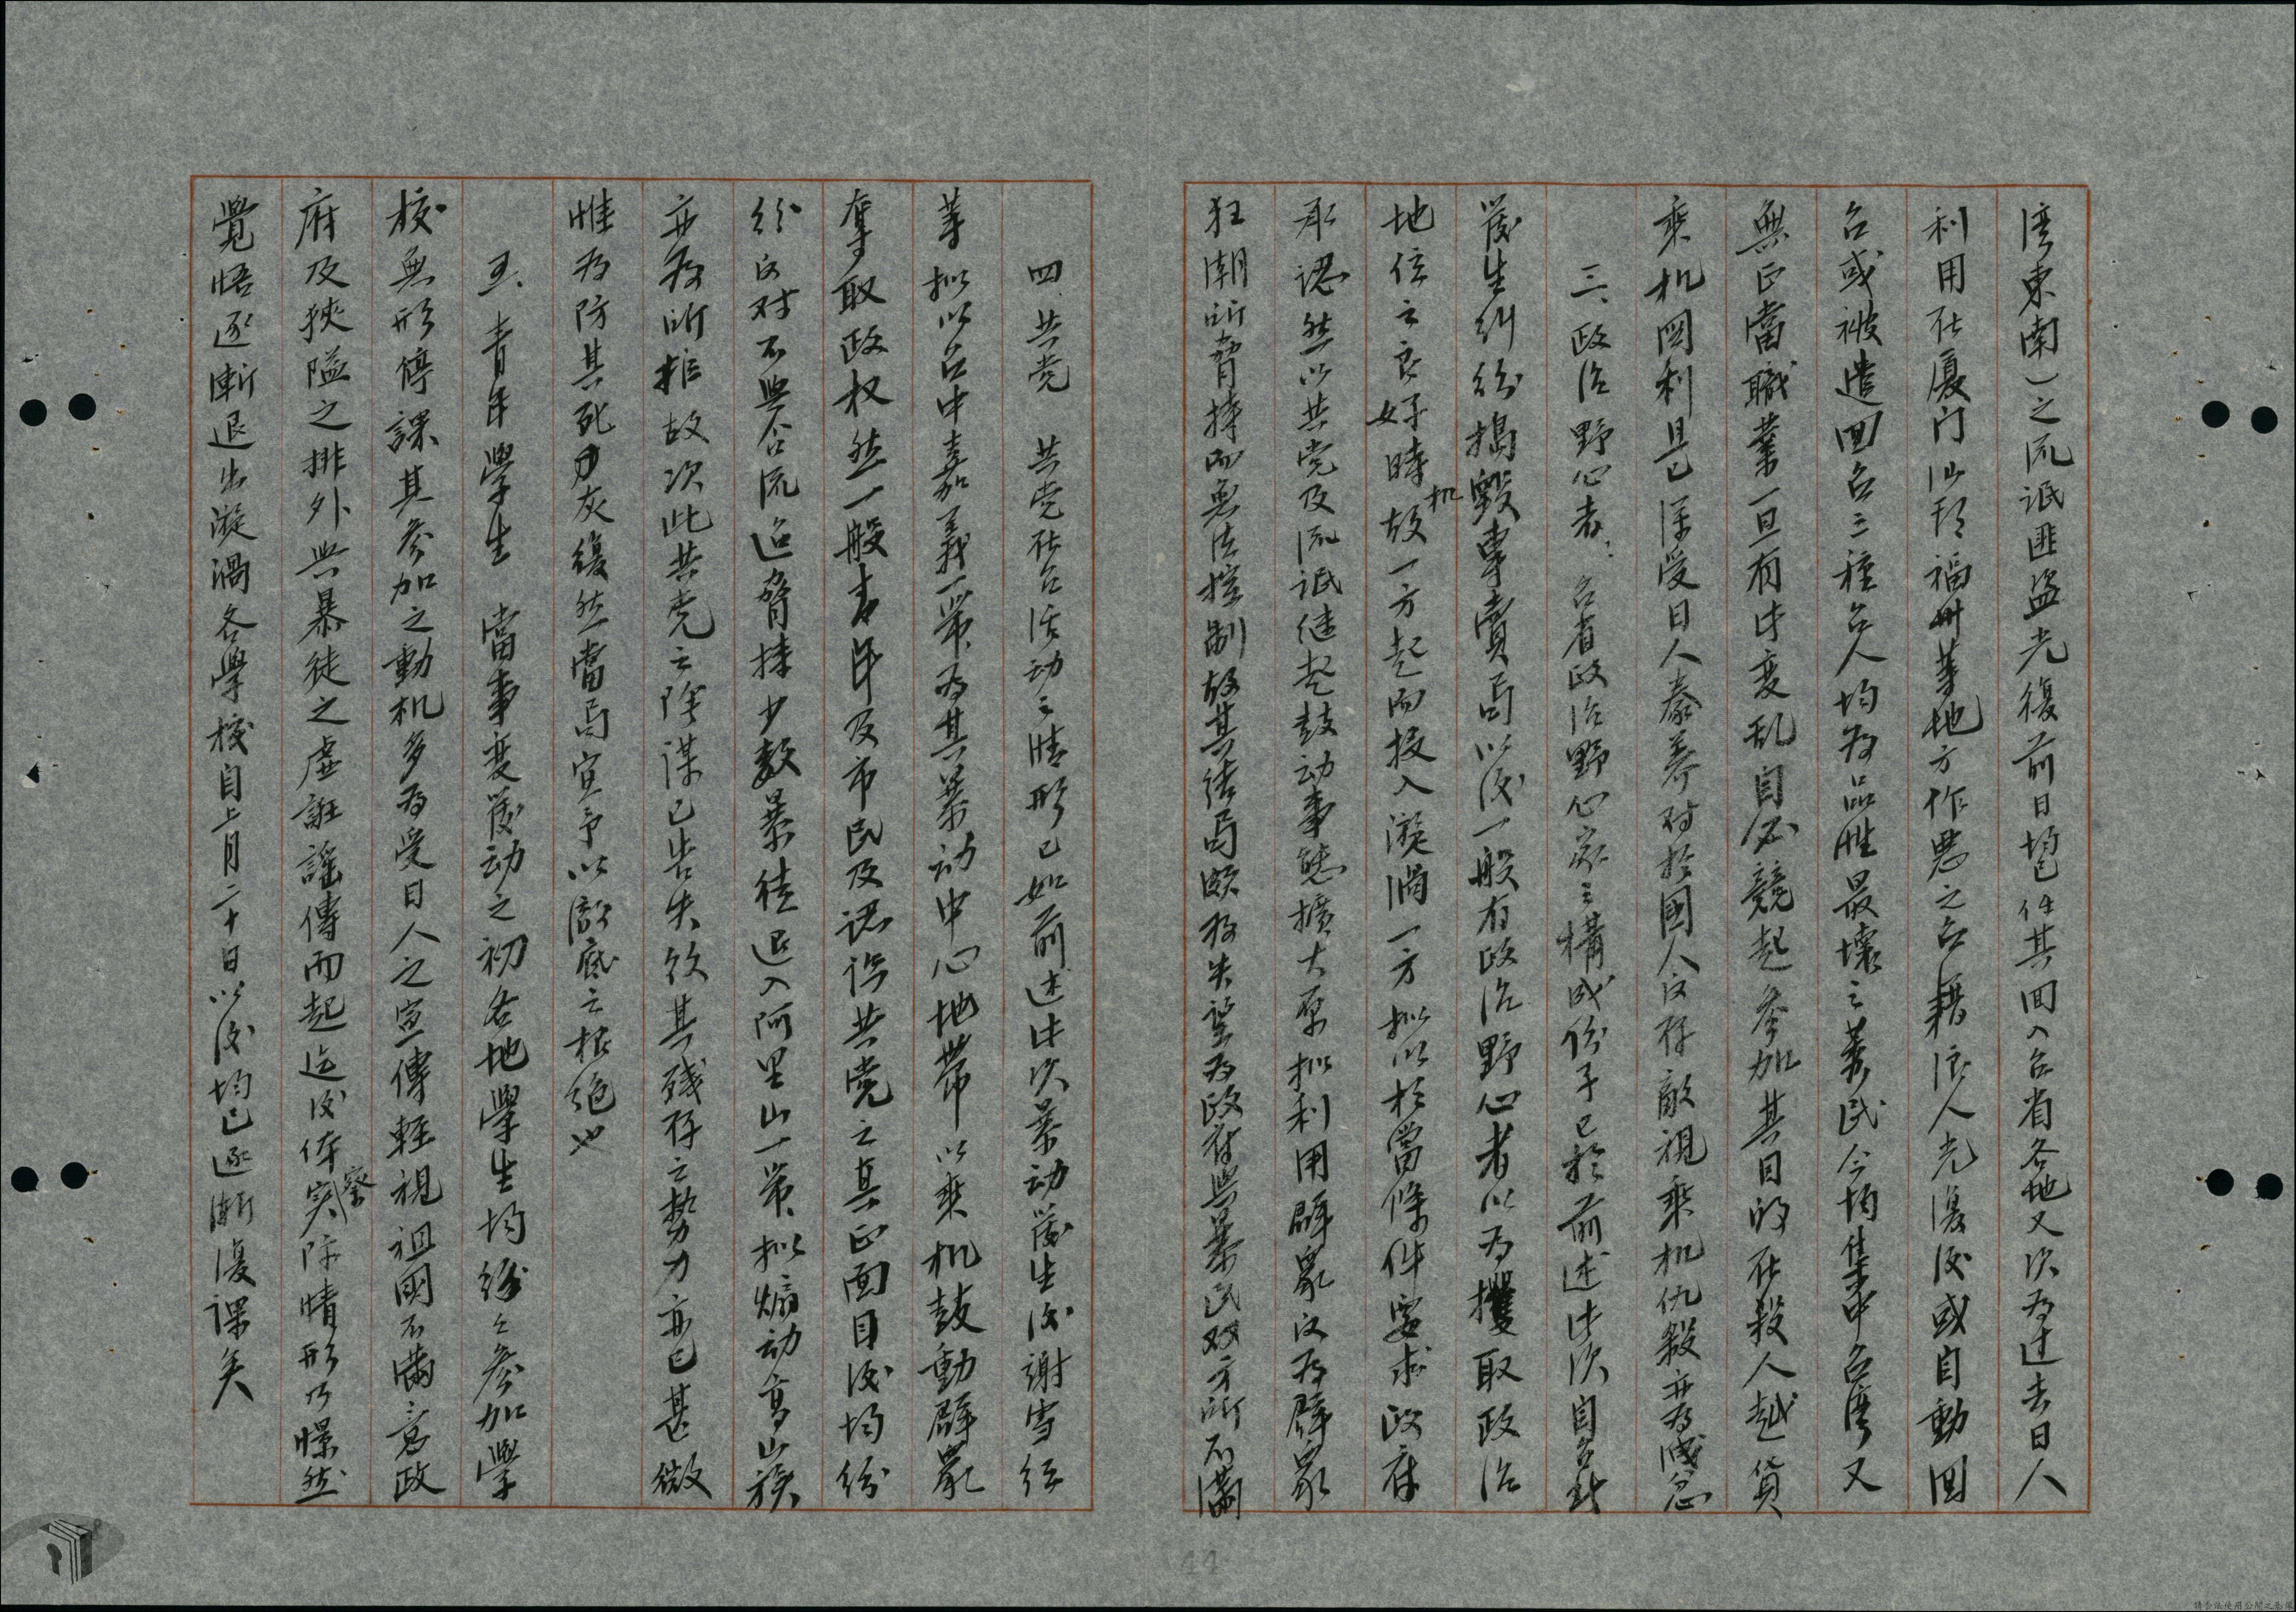 湾東南)之流氓匪盗光復前日均已任其回入台省各地又次为过去日人
利用在厦门汕头福州等地方作悪之台籍浪人光復後或自動回
台或被遣回台三種台人均为品性最壊之莠民今均集中台湾又
無正當職業一旦有此変乱自必競起参加其目的在殺人越貨
乘机图利且已深受日人豢养对於國人仅存敵視乘机仇殺亦为咸忿
三、政治野心者：台省政治野心家之構成份子已於前述此次自台北
發生糾紛搗毀專賣局以後一般有政治野心者以为攫取政治
地位之良好時机故一方起而投入漩渦一方拟以於當條件要求政府
承認然以共党及流氓继起鼓动事態擴大原拟利用群眾反为群眾
狂潮所脅持而無法控制故其结局頗为失望为政府與暴民双方所不滿
四、共党 共党在台活动之情形已如前述此次暴动發生後謝雪红
等拟以台中嘉義一带为其暴动中心地带以乘机鼓動群眾
奪取政权然一般青年及市民及認清共党之真正面目後均纷
纷反对不與合流迨脅持少数暴徒退入阿里山一带拟煽动高山族
亦为所拒故次此共党之陰谋已告失敗其残存之勢力亦已甚微
惟为防其死灰復然當局宜予以澈底之根绝也
五、青年學生 當事変發动之初各地學生均纷々參加學
校無形停課其參加之動机多为受日人之宣傳輕視祖國不滿意政
府及狹隘之排外與暴徒之虚誑謠傳而起迄後体察实际情形乃憬然
覺悟逐漸退出漩渦各學校自上月二十日以後均已逐漸復课矣
44
請合法使用公開之影像